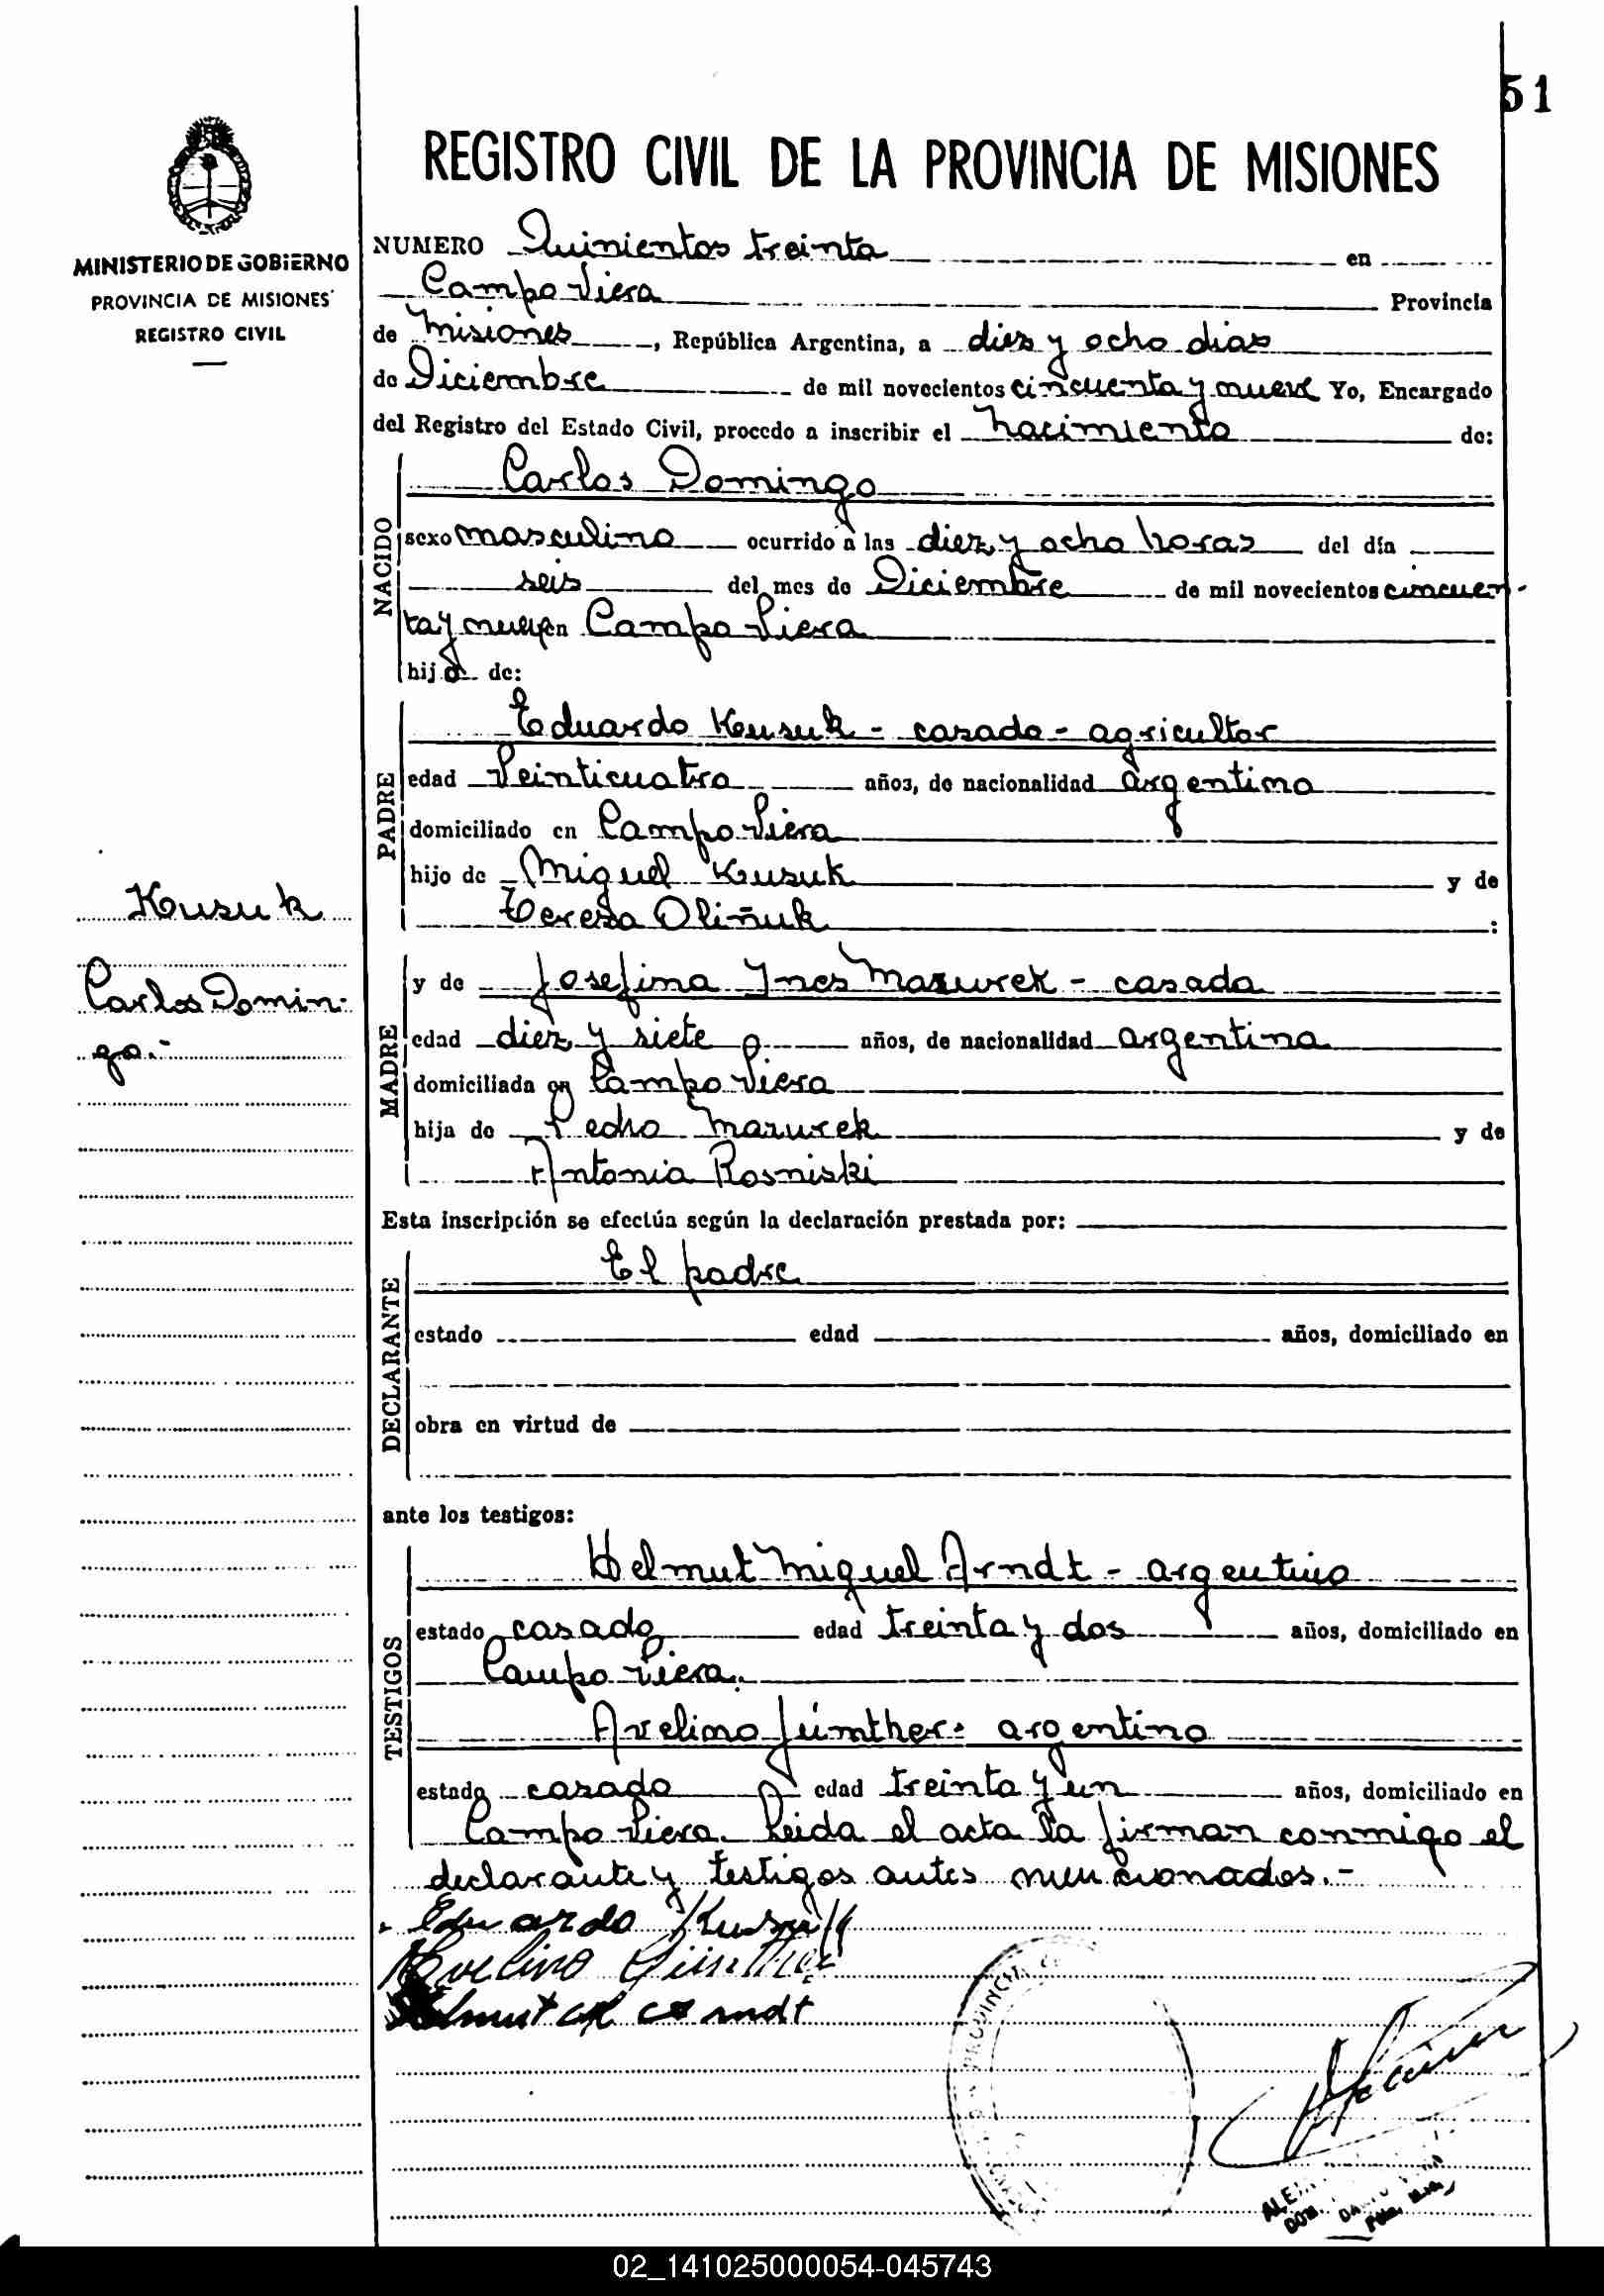 51
REGISTRO CIVIL DE LA PROVINCIA DE MISIONES
MINISTERIO DE GOBIERNO
PROVINCIA DE MISIONES
REGISTRO CIVIL
NUMERO Quinientos treinta en
Campo Viera Provincia
de Misiones, República Argentina, a diez y ocho dias
de Diciembre de mil novecientos cincuenta y nueve Yo, Encargado
del Registro del Estado Civil, procedo a inscribir el nacimiento de:
NACIDO
Carlos Domingo
sexo masculino ocurrido a las diez y ocho horas del día
seis del mes de Diciembre de mil novecientos cincuen-
ta y nueve en Campo Viera
hijo de:
PADRE
Eduardo Kusuk - casado - agricultor
edad Veinticuatro años, de nacionalidad argentina
domiciliado en Campo Viera
hijo de Miguel Kusuk y de
Teresa Oliñuk :
Kusuk
Carlos Domin-
go.-
MADRE
y de Josefina Ynes Mazurek - casada
edad diez y siete años, de nacionalidad argentina
domiciliada en Campo Viera
hija de Pedro Mazurek y de
Antonia Rosniski
Esta inscripción se efectúa según la declaración prestada por:
DECLARANTE
El padre
estado edad años, domiciliado en
obra en virtud de
ante los testigos:
TESTIGOS
Helmut Miguel Arndt - argentino
estado casado edad treinta y dos años, domiciliado en
Campo Viera.
Avelino Günther: argentino
estado casado edad treinta y un años, domiciliado en
Campo Viera. Leida el acta la firman conmigo el
declarante y testigos antes mencionados.-
Eduardo Kusuk
Avelino Günther
Helmut M Arndt
PROVINCIA
02_141025000054-045743